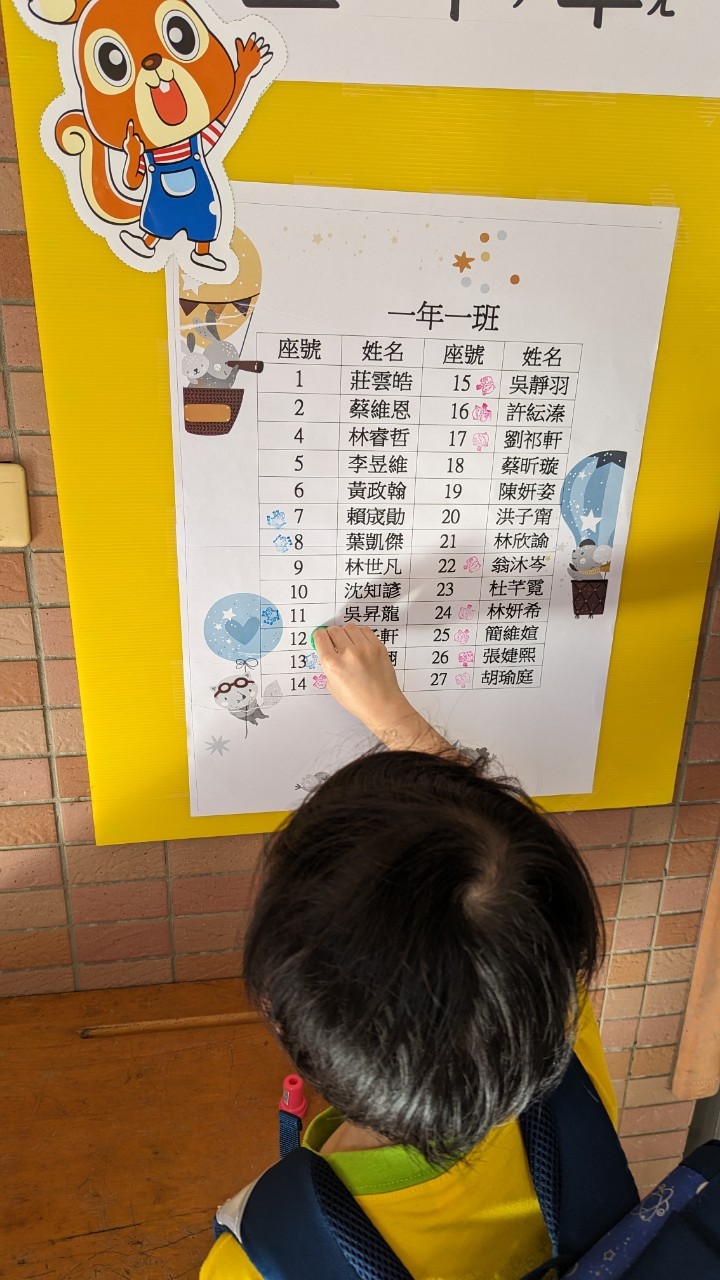 一年一班
座號 姓名 座號 姓名
1 莊雲皓 15 吳靜羽
2 蔡維恩 16 許紜溱
4 林睿哲 17 劉祁軒
5 李昱維 18 蔡昕璇
6 黃政翰 19 陳妍姿
7 賴宬勛 20 洪子甯
8 葉凱傑 21 林欣諭
9 林世凡 22 翁沐岑
10 沈知諺 23 杜芊霓
11 吳昇龍 24 林妍希
12 軒 25 簡維媗
13 翔 26 張婕熙
14 27 胡瑜庭